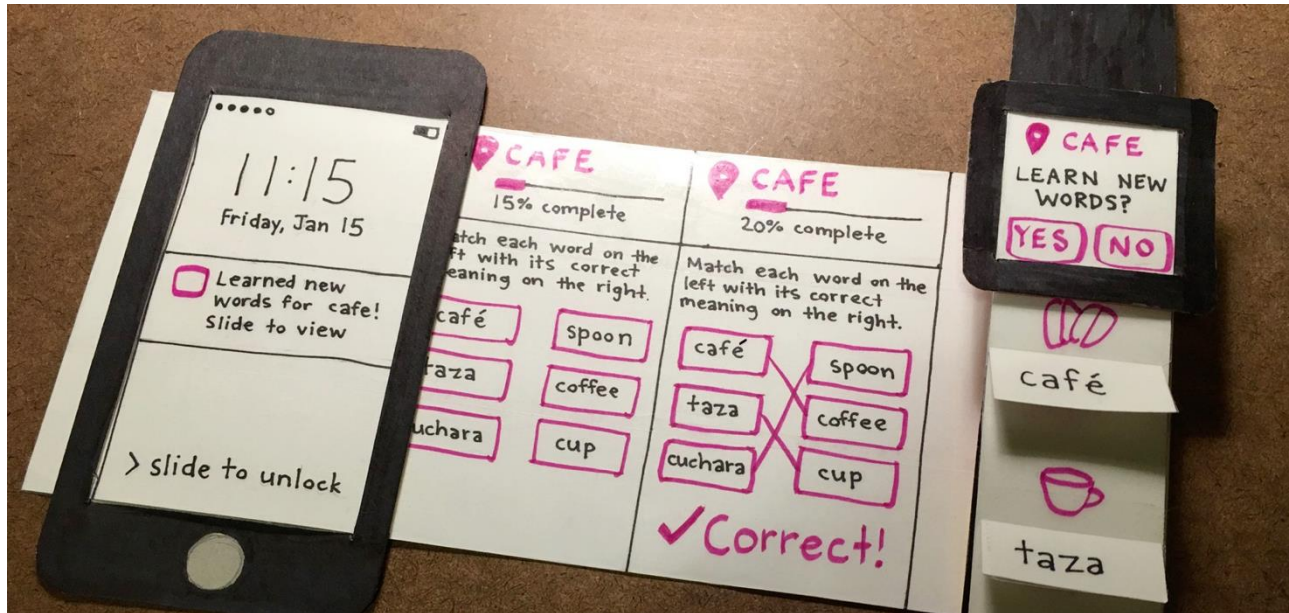 11:15
Friday, Jan 15
Learned new
words for cafe!
Slide to view
> slide to unlock
CAFE
15% complete
each word on the
with its correct
on the right.
café
spoon
taza
coffee
cup
CAFE
20% complete
Match each word on the
left with its correct
meaning on the right.
café
spoon
taza
coffee
cuchara
cup
✓Correct!
CAFE
LEARN NEW
WORDS?
YES
NO
café
taza